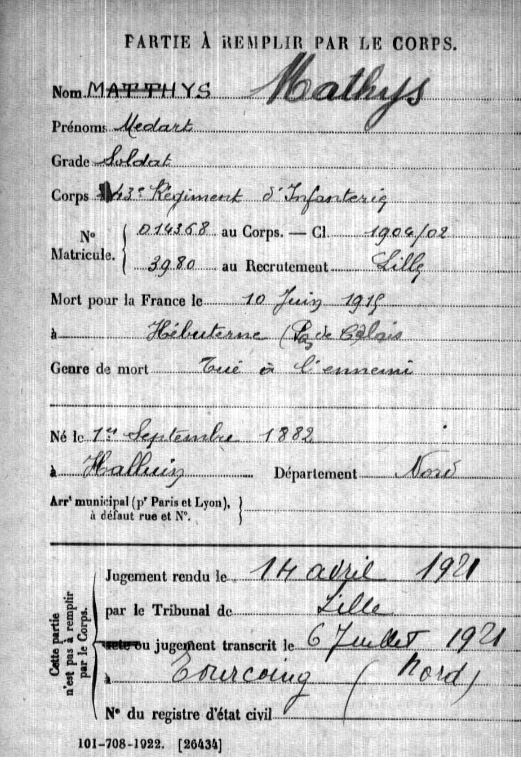 PARTIE À REMPLIR PAR LE CORPS.
Nom MATTHYS Mathys
Prénoms Medart
Grade Soldat
Corps 43e Régiment d'Infanterie
No Matricule. 014368 au Corps. — Cl 1904/02
3980 au Recrutement Lille
Mort pour la France le 10 Juin 1915
à Hébuterne (Pas de Calais
Genre de mort Tué à l'ennemi
Né le 1er Septembre 1882
à Halluin Département Nord
Arrt municipal (pr Paris et Lyon),
à défaut rue et No.
Cette partie
n'est pas à remplir
par le Corps.
Jugement rendu le 14 avril 1921
par le Tribunal de Lille
acte ou jugement transcrit le 6 Juillet 1921
à Tourcoing (Nord)
No du registre d'état civil
101-708-1922. [26434]